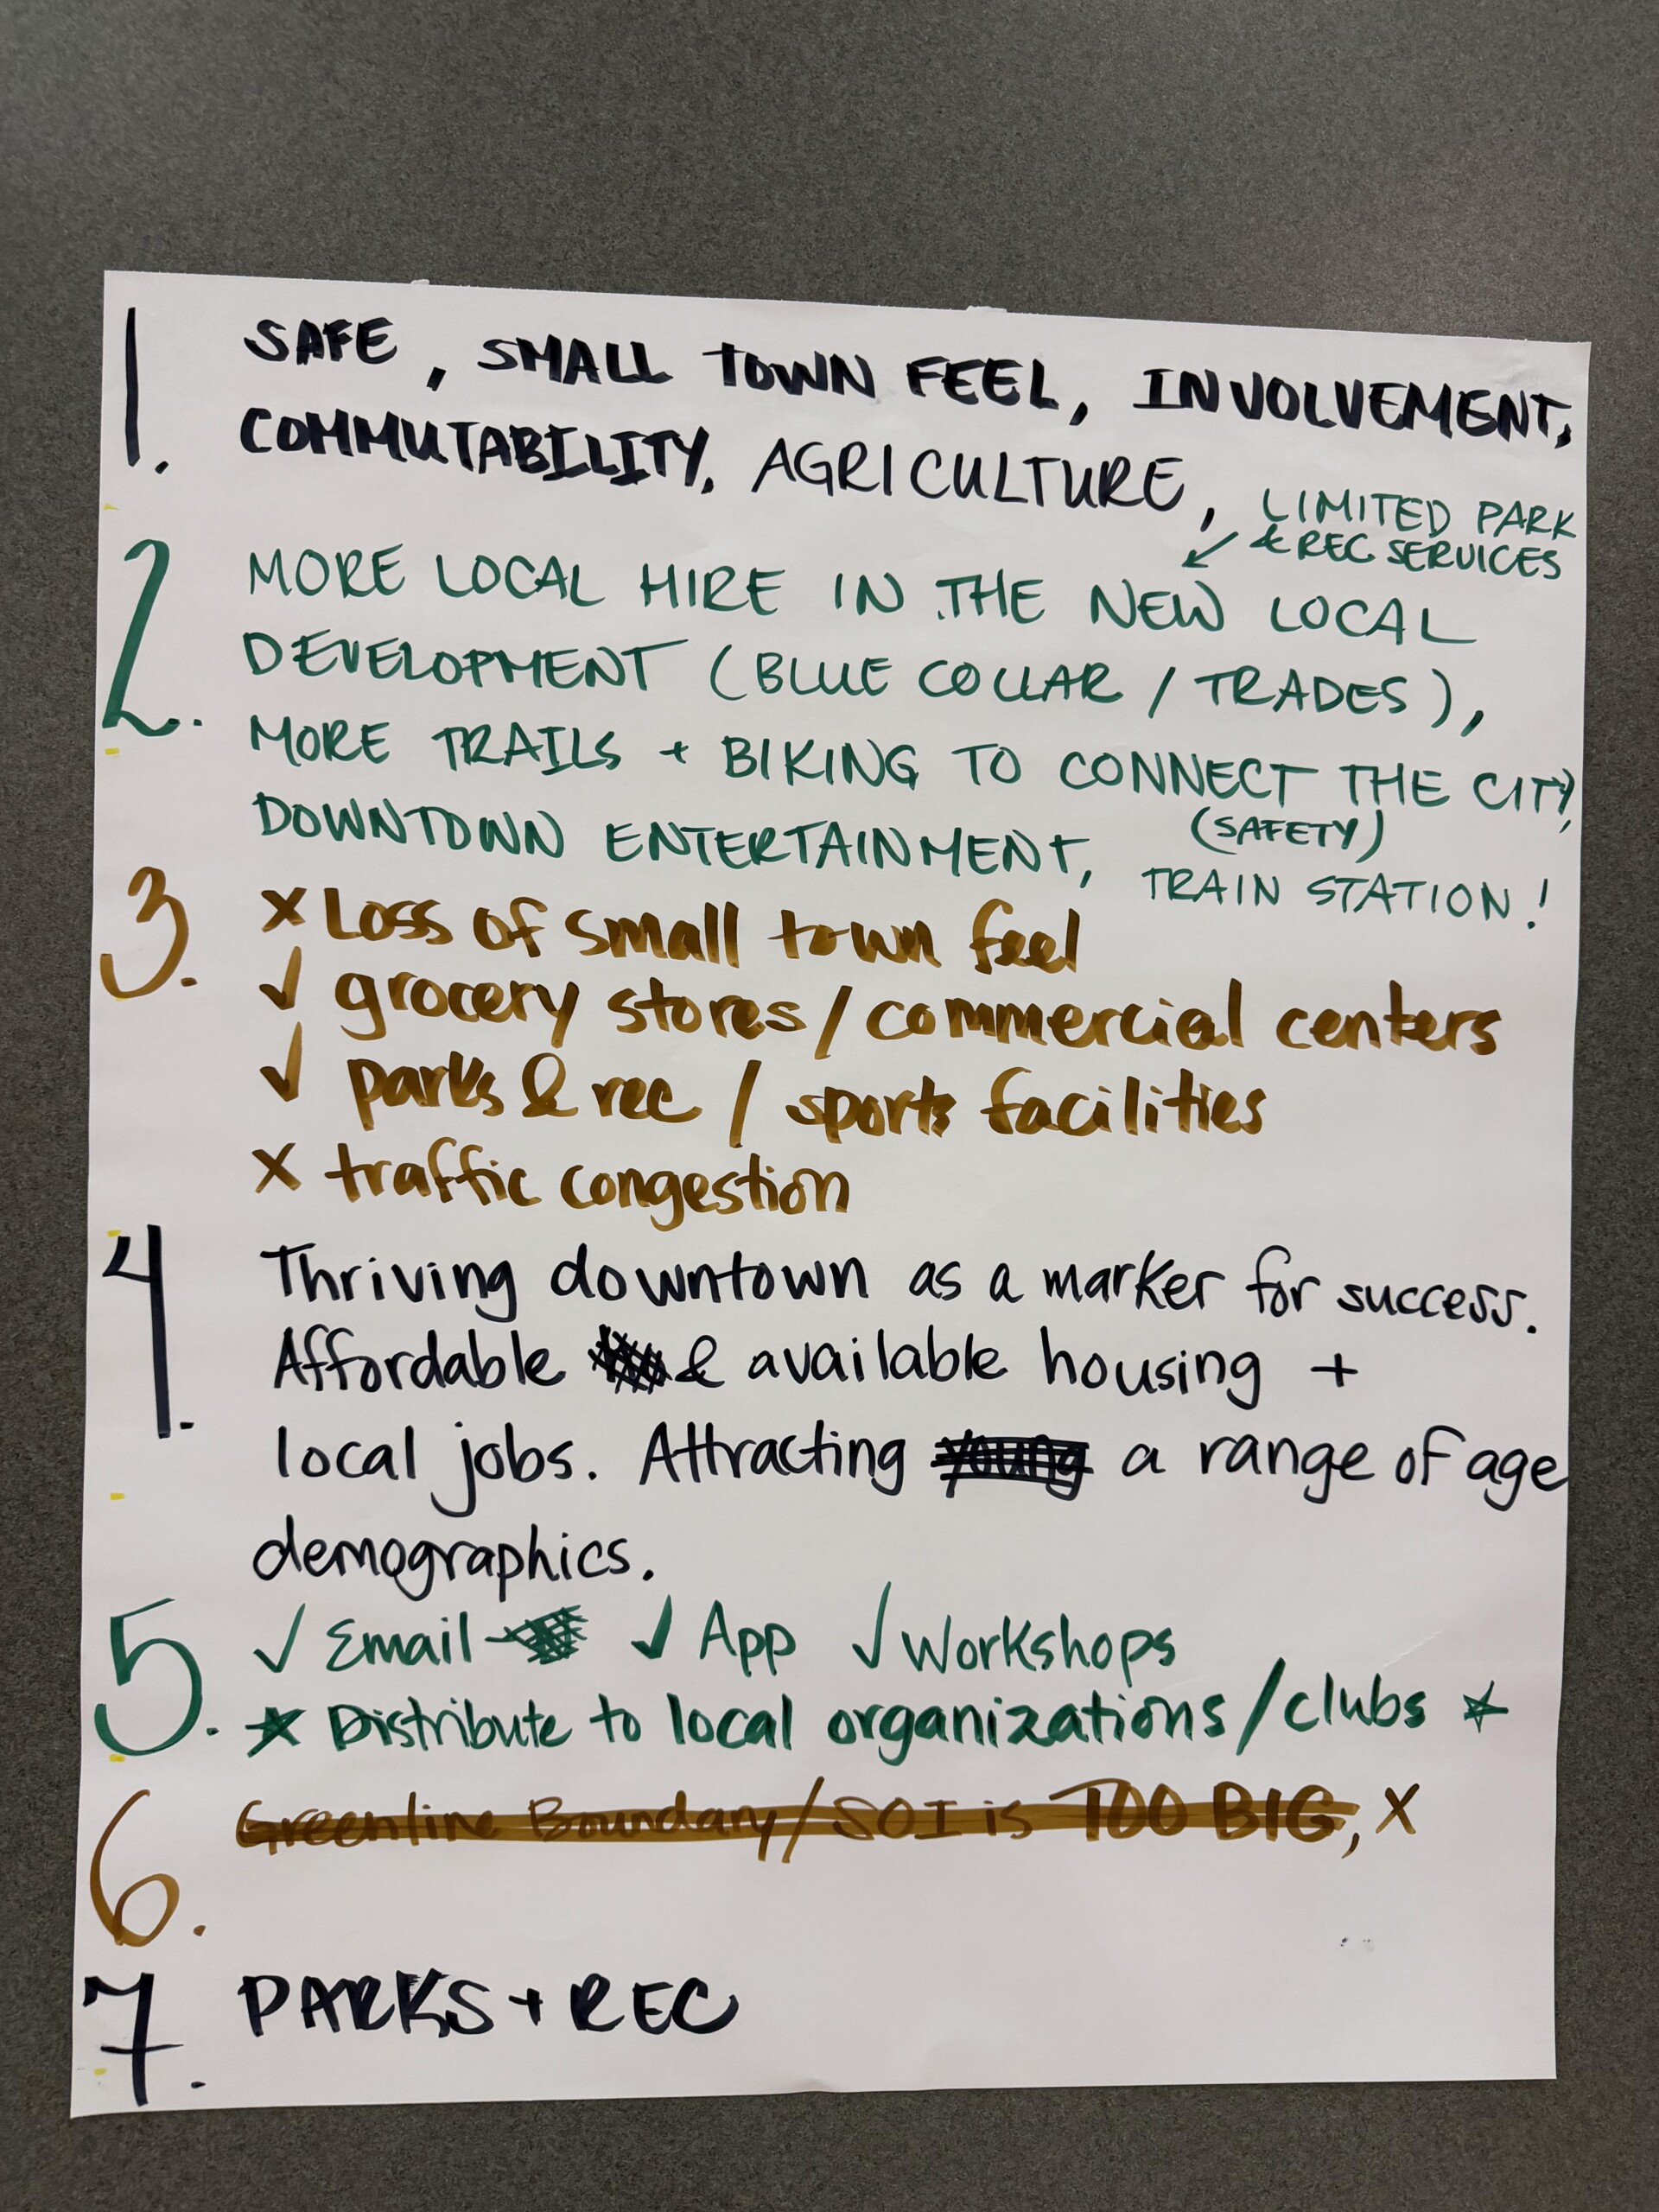 1. SAFE, SMALL TOWN FEEL, INVOLVEMENT,
COMMUTABILITY, AGRICULTURE,
LIMITED PARK
& REC SERVICES
2. MORE LOCAL HIRE IN THE NEW LOCAL
DEVELOPMENT (BLUE COLLAR / TRADES),
MORE TRAILS + BIKING TO CONNECT THE CITY,
(SAFETY)
DOWNTOWN ENTERTAINMENT, TRAIN STATION!
3. X Loss of small town feel
✓ grocery stores / commercial centers
✓ parks & rec / sports facilities
X traffic congestion
4. Thriving downtown as a marker for success.
Affordable & available housing +
local jobs. Attracting young a range of age
demographics.
5. ✓ Email ✓ App ✓ Workshops
★ Distribute to local organizations/clubs ★
6. Greenline Boundary/SOI is TOO BIG, X
7. PARKS + REC